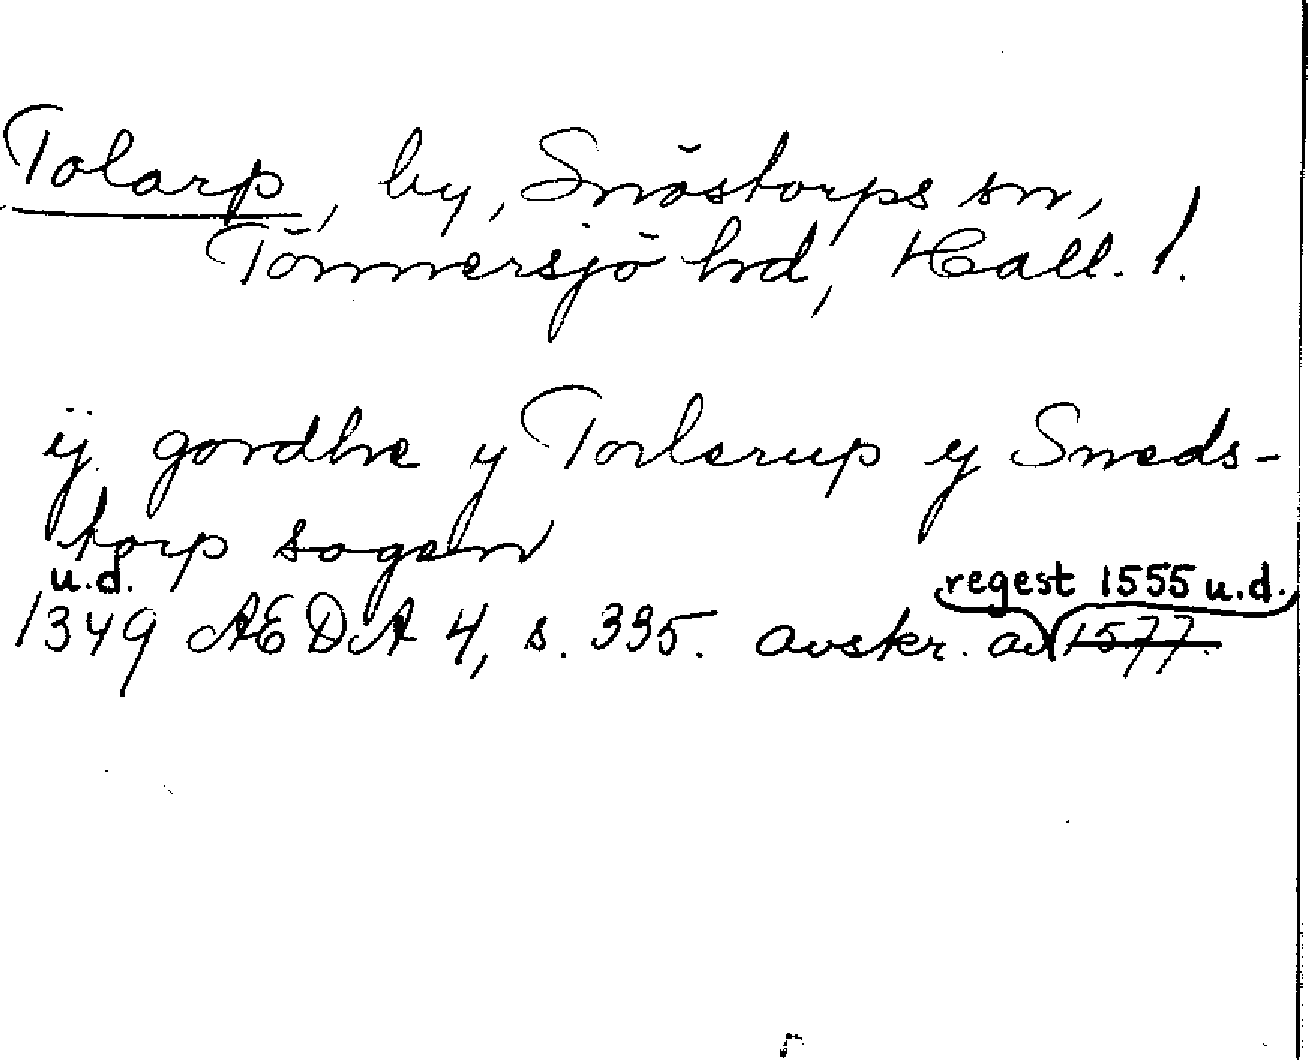 Tolarp, by, Snöstorps sn,
Tönnersjö hd, Hall. l.
ij gordhe y Torlerup y Sneds-
torp sogen
u.d.
regest 1555 u.d.
1349 AEDA 4, s. 335. avskr. av 1577.